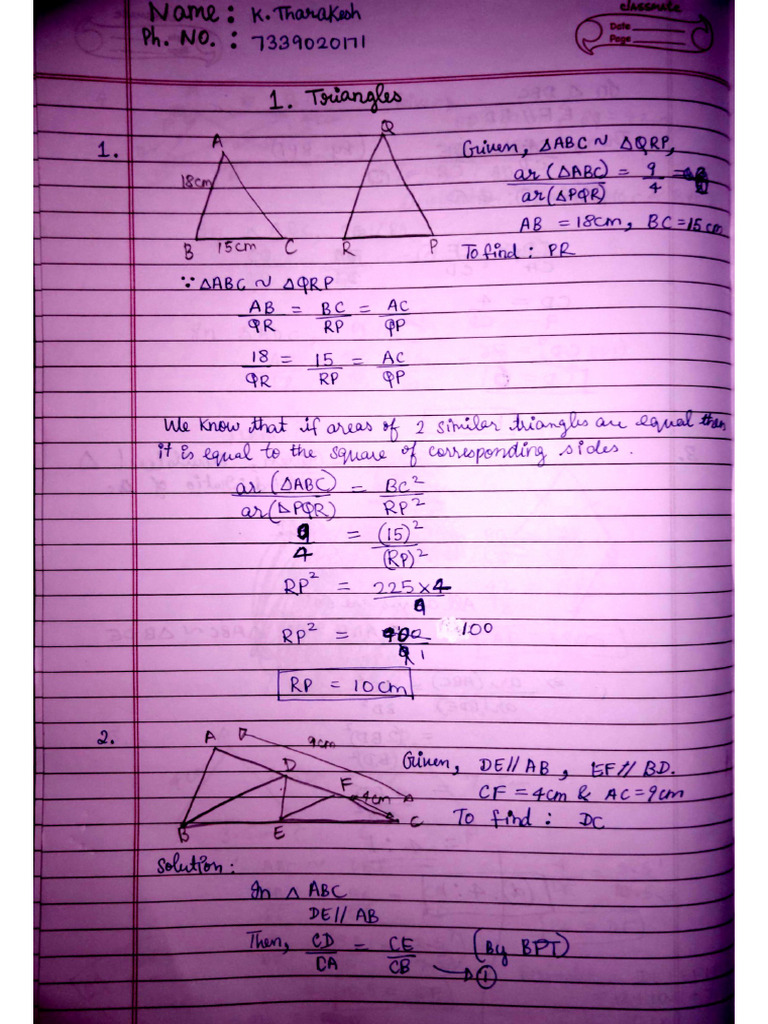 Name : K. Tharakesh
Ph. No. : 7339020171
classmate
Date
Page
1. Triangles
1.
A
18cm
B 15cm C
Q
R P
Given, △ABC ~ △QRP,
ar (△ABC) = 9
ar (△PQR) 4
AB = 18cm, BC = 15cm
To find : PR
∵ △ABC ~ △QRP
AB = BC = AC
QR RP QP
18 = 15 = AC
QR RP QP
We know that if areas of 2 similar triangles are equal then
it is equal to the square of corresponding sides.
ar (△ABC) = BC²
ar (△PQR) RP²
9 = (15)²
4 (RP)²
RP² = 225 x 4
9
RP² = 100
1
RP = 10cm
2.
A
9cm
D
F
4cm
B E C
Given, DE // AB, EF // BD.
CF = 4cm & AC = 9cm
To find : DC
Solution :
In △ ABC
DE // AB
Then, CD = CE (By BPT)
CA CB → ①